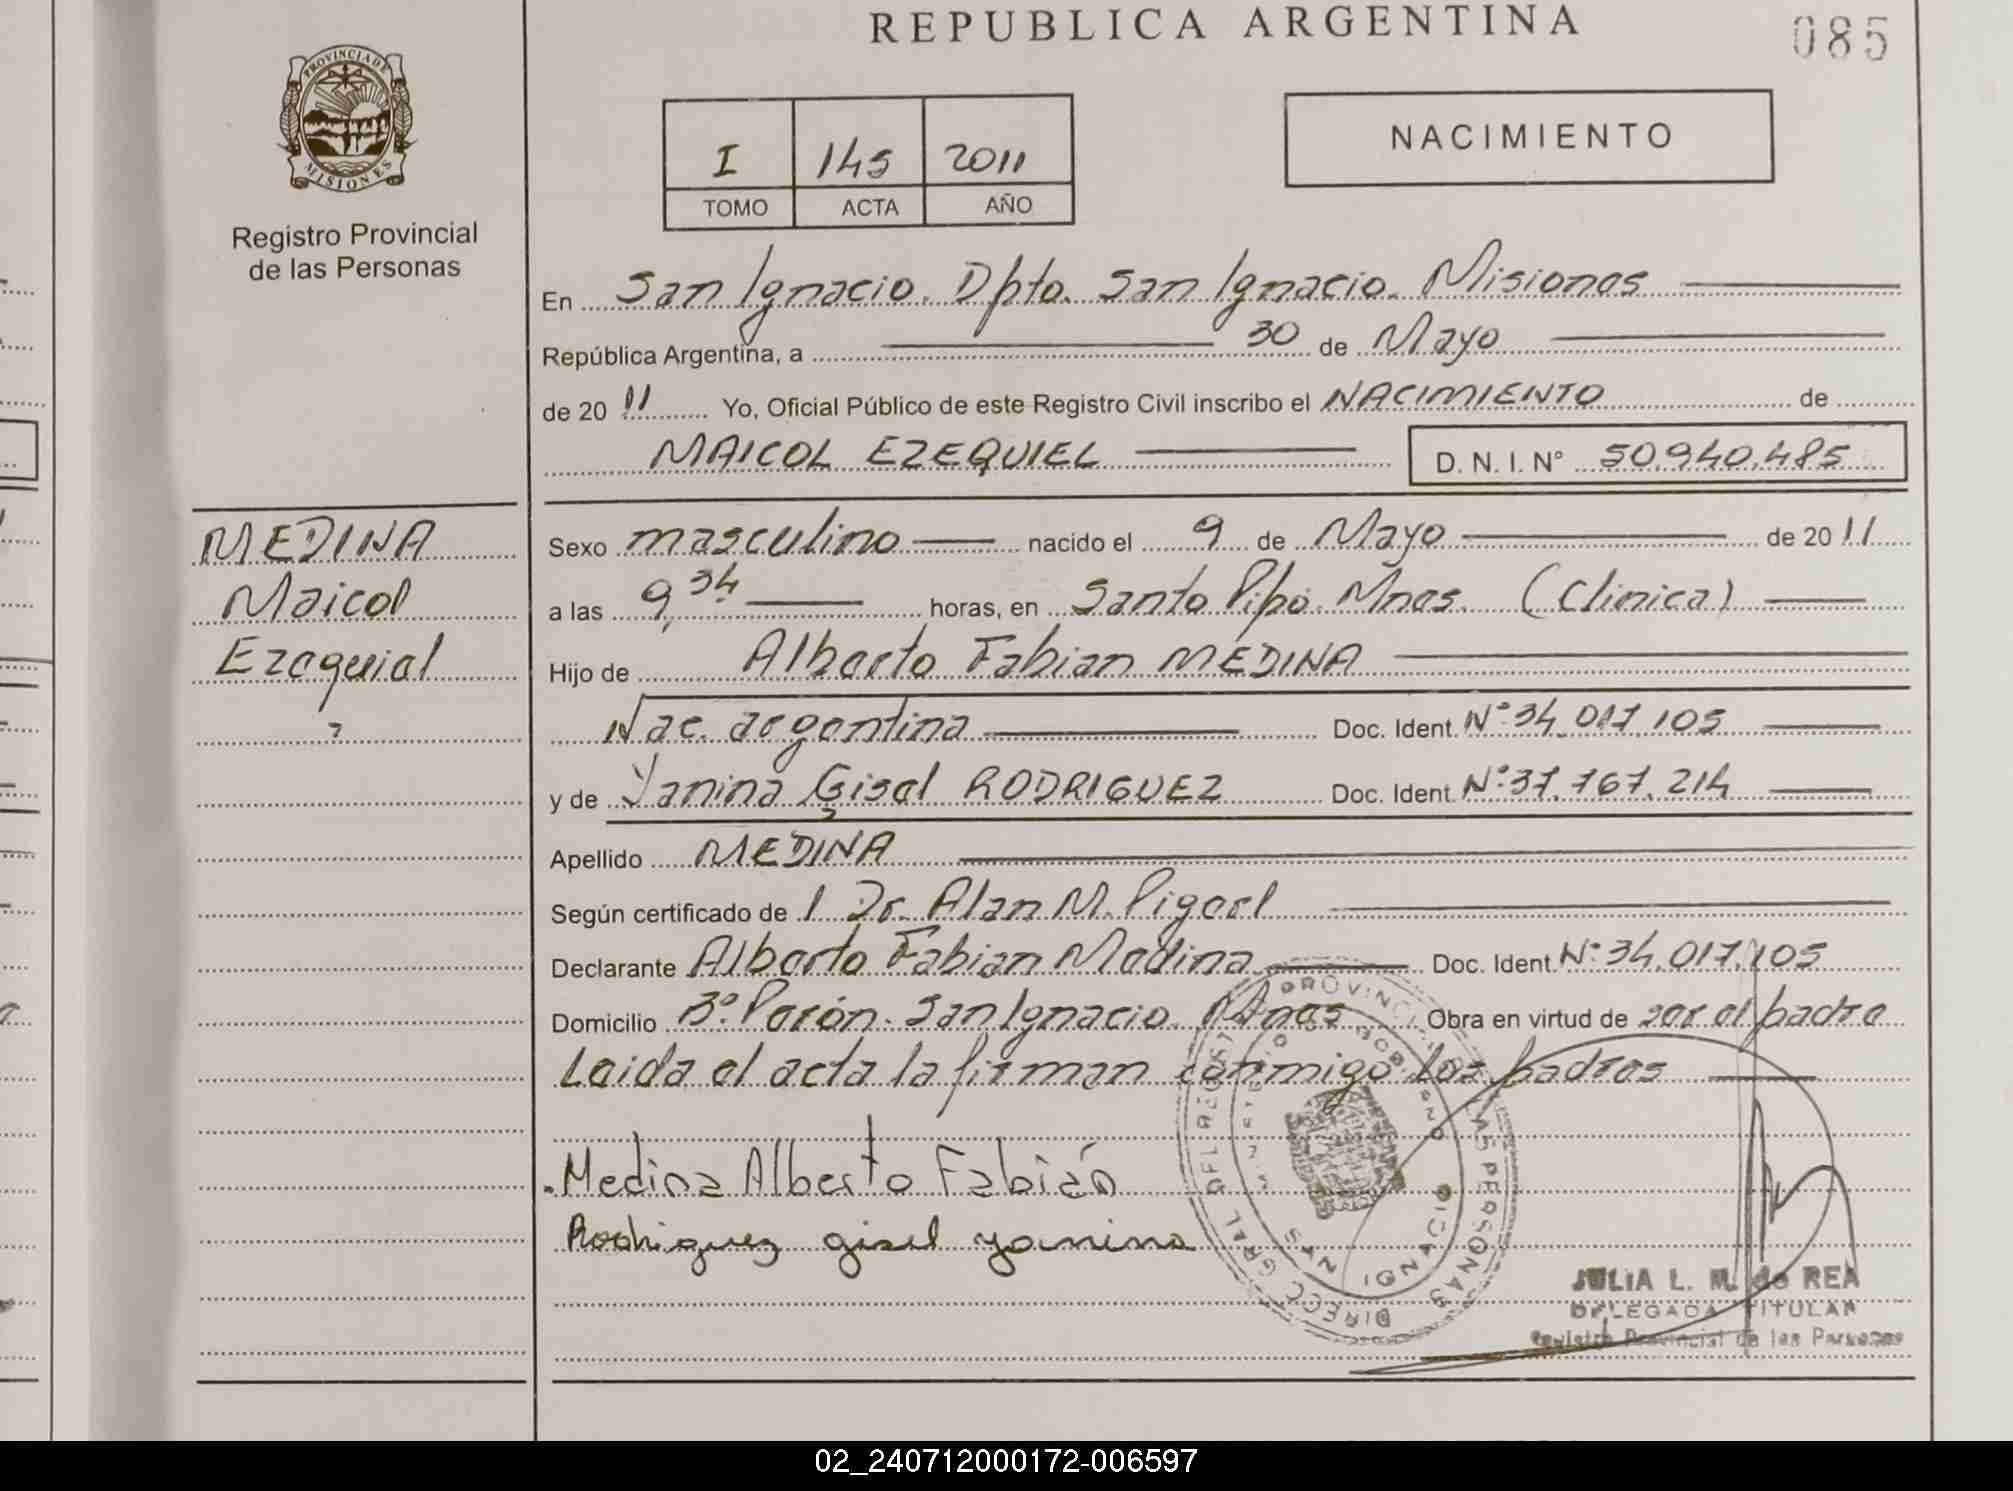 REPUBLICA ARGENTINA
085
PROVINCIA DE
MISIONES
Registro Provincial
de las Personas
I 145 2011
TOMO ACTA AÑO
NACIMIENTO
En San Ignacio. Dpto. San Ignacio. Misiones
República Argentina, a 30 de Mayo
de 2011 Yo, Oficial Público de este Registro Civil inscribo el NACIMIENTO de
MAICOL EZEQUIEL D. N. I. N° 50.940.485
MEDINA
Maicol
Ezequiel
Sexo masculino nacido el 9 de Mayo de 2011
a las 9,34 horas, en Santo Pipó. Mnes. (Clinica)
Hijo de Alberto Fabian MEDINA
Nac. argentina Doc. Ident. N° 34.017.105
y de Yanina Gisel RODRIGUEZ Doc. Ident. N° 37.767.214
Apellido MEDINA
Según certificado de l Dr. Alan M. Pigerl
Declarante Alberto Fabian Medina Doc. Ident. N° 34.017.105
Domicilio B° Perón. San Ignacio. Mnes Obra en virtud de ser el padre
Leida el acta la firman conmigo los padres
Medina Alberto Fabián
Rodriguez gisel yanina
DIRECC. GRAL. DEL REGIST. PROVINC. DE LAS PERSONAS
MINISTERIO DE GOBIERNO
SAN IGNACIO
JULIA L. M. de REA
DELEGADA TITULAR
Registro Provincial de las Personas
02_240712000172-006597